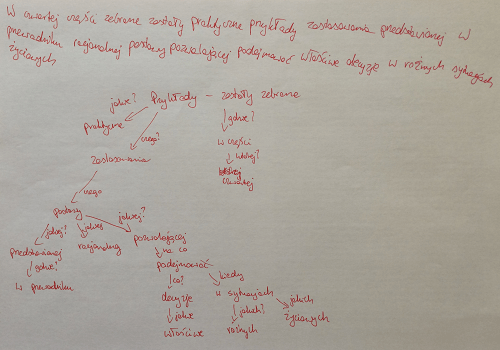 W czwartej części zebrane zostały praktyczne przykłady zastosowania przedstawionej w
przewodniku racjonalnej postawy pozwalającej podejmować właściwe decyzje w różnych sytuacjach
życiowych
jakie? Przykłady - zostały zebrane
praktyczne czego? gdzie?
zastosowania w części
której?
czwartej
czego
postawy
jakiej? jakiej jakiej?
przedstawionej racjonalnej pozwalającej
gdzie? na co
w przewodniku podejmować
co? kiedy
decyzje w sytuacjach jakich
jakie jakich? życiowych
właściwe różnych